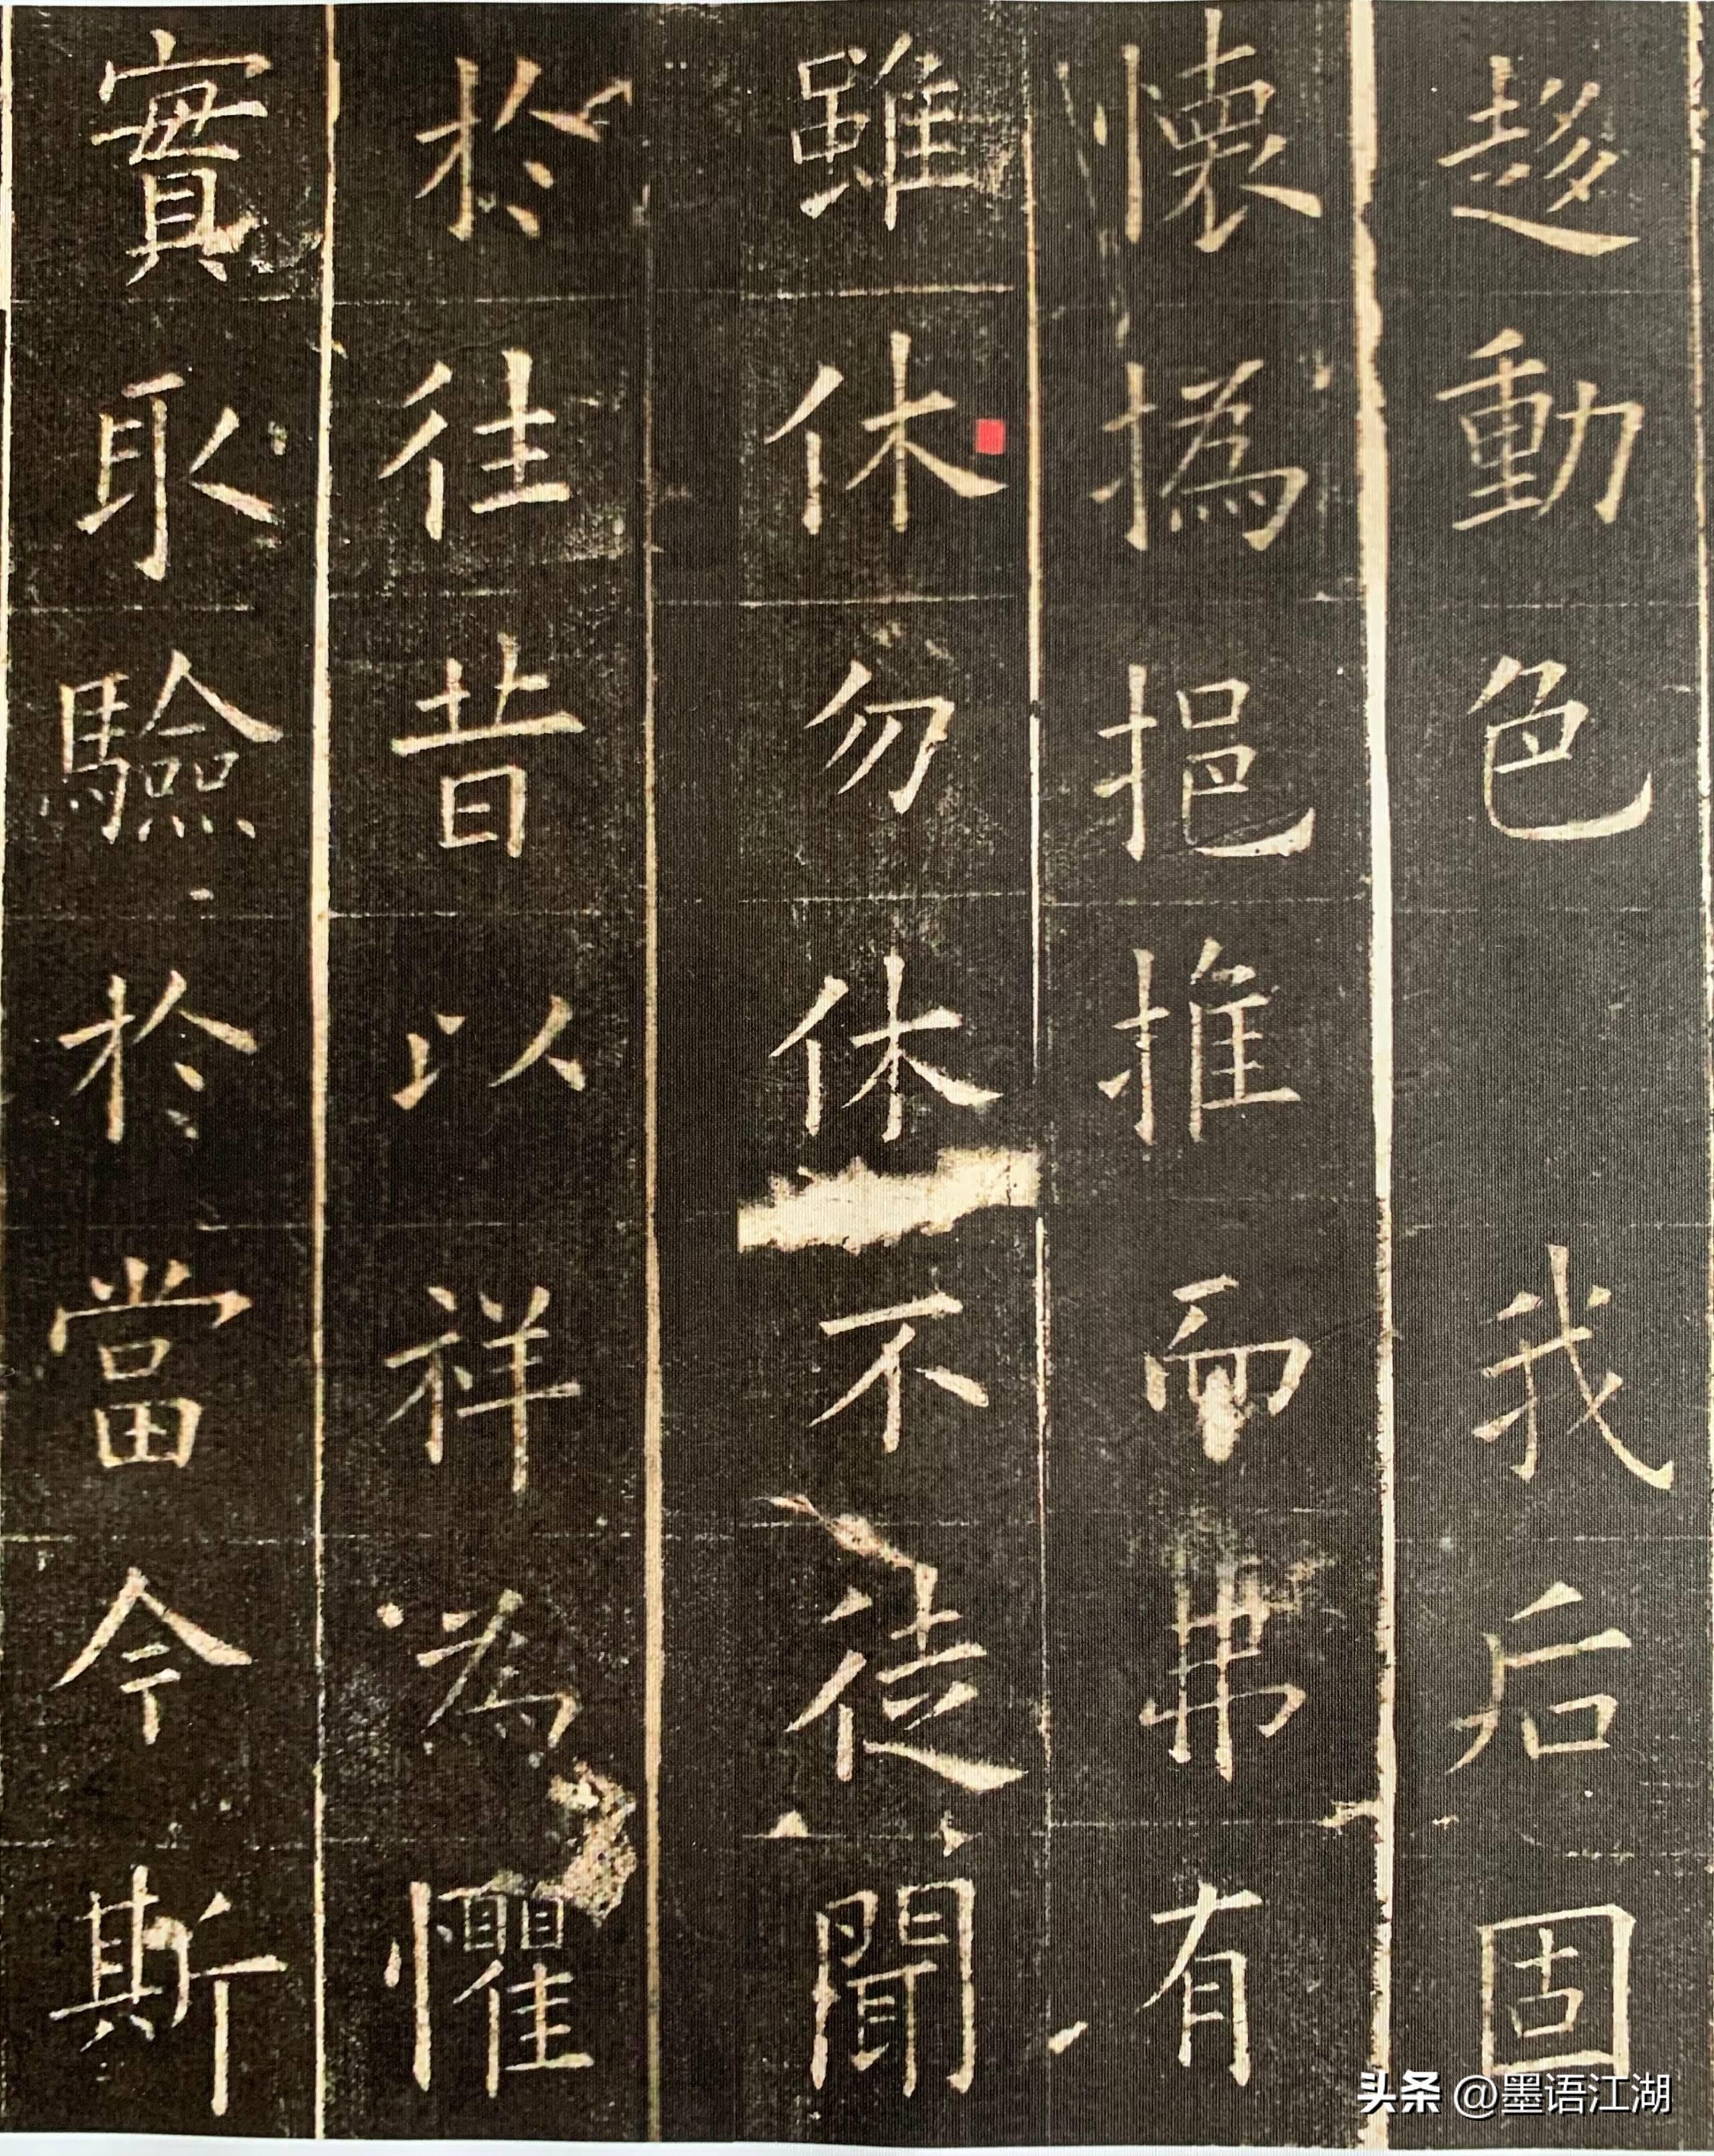 趍動色 我后固
懐撝挹推而弗有
雖休勿休不徒聞
於往昔以祥為懼
實取驗於當今斯
头条 @墨语江湖